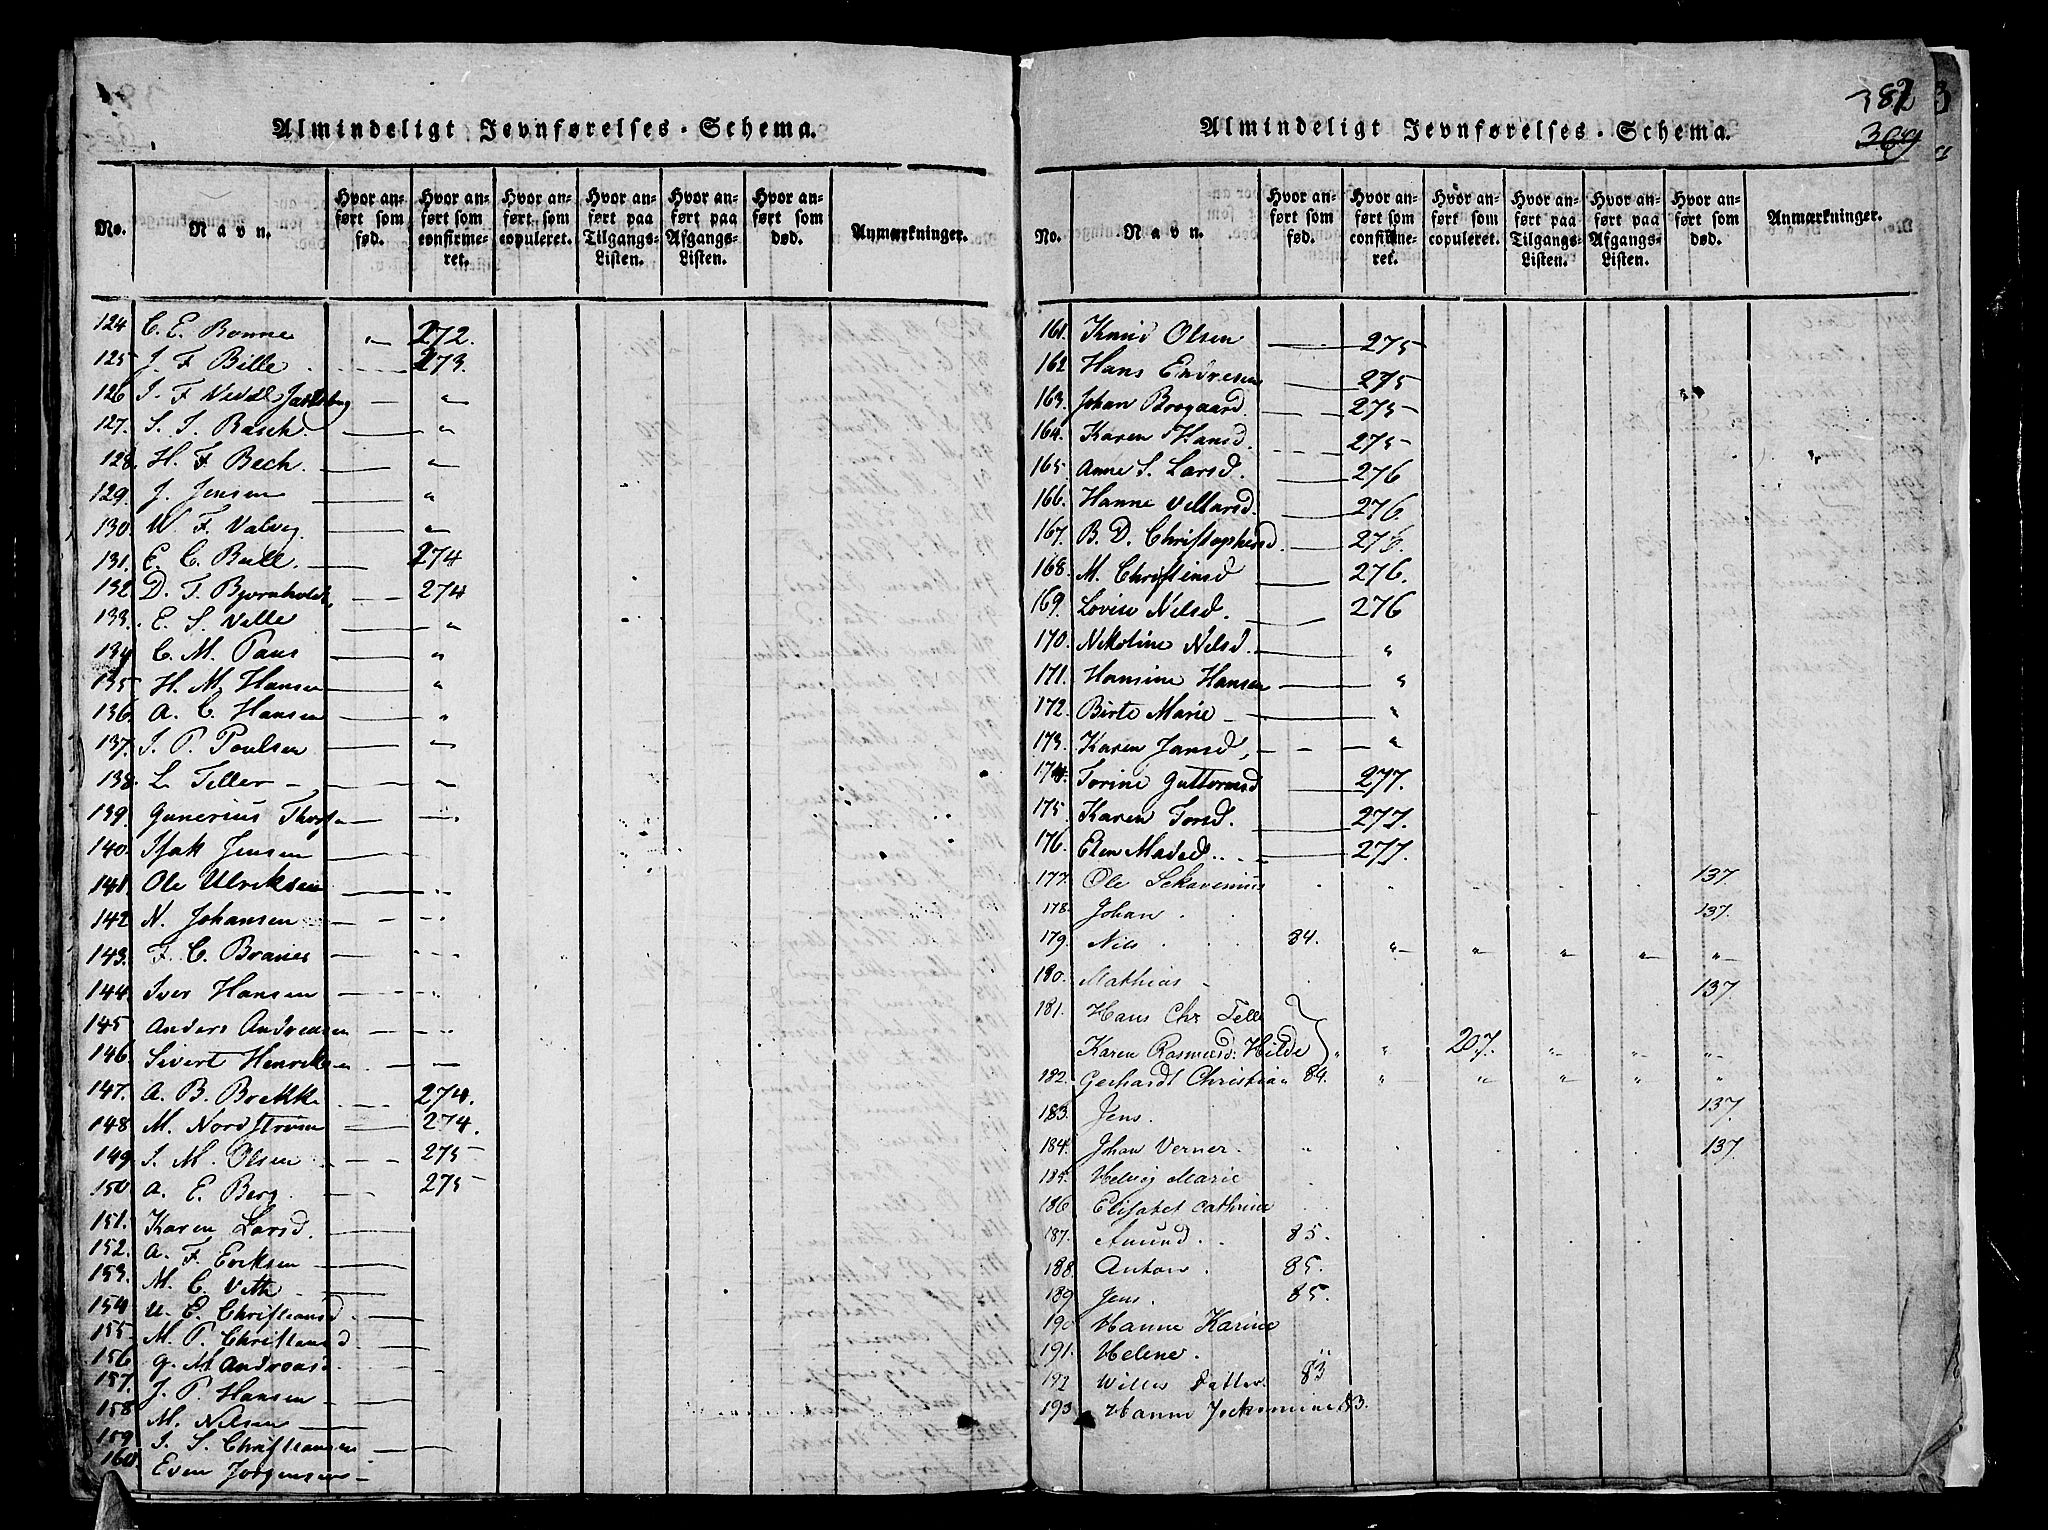 Almindeligt Jevnførelses-Schema.
No. Navn. Hvor anført som fød. Hvor anført som confirmeret. Hvor anført som copuleret. Hvor anført paa Tilgangs-Listen. Hvor anført paa Afgangs-Listen. Hvor anført som død. Anmarkninger.
124 C. E. Bonne " 272.
125 J. F Bille 273.
126 J. F Vedel Jarlsberg — "
127. S. J. Rasch. — "
128. H. F. Bech. — "
129. J. Jensen — "
130. W. F. Valvig — "
131. E. C. Bull. — 274
132. D. F. Bjørnholdt — 274
133. E. S. Velle — "
134 C. M. Paus — "
135 H. M. Hansen — "
136. A. C. Hansen — "
137. J. P. Poulsen — "
138. L. Teller — "
139. Gunerius — "
140. Isak Jensen —
141. Ole Ulriksen — "
142 N. Johansen — "
143. F. C. Branes — "
144. Iver Hansen — "
145 Anders Andreasen — "
146. Sivert Henriksen —
147. A. B. Brekke — 274.
148 M. Nordstrøm — 274.
149 S. M. Olsen — 275
150 A. E. Berg. — 275
151. Karen Larsd. —
152. A. F. Eriksen —
153. M. C. Veth —
154 U. E. Christiansd —
155. M. P. Christiansd —
156 G. M Andreasd —
157. J. P. Hansen —
158 M. Nilsen —
159 J. S. Christiansen —
160 Even Jørgensen —
387
369
Almindeligt Jevnførelses-Schema.
No. Navn. Hvor anført som fød. Hvor anført som confirmeret. Hvor anført som copuleret. Hvor anført paa Tilgangs-Listen. Hvor anført paa Afgangs-Listen. Hvor anført som død. Anmarkninger.
161. Knud Olsen — 275
162 Hans Endresen — 275
163. Johan Borgaard — 275
164. Karen Hansd. — 275
165. Anne S. Larsd. — 276
166. Hanne — 276.
167. B. D. Christophersd. — 276.
168. M. Christensd — 276.
169. Lovise Nilsd. — 276
170. Nikoline Nilsd. — "
171. Hansine Hansen — "
172. Birte Marie — "
173. Karen Jansd, — "
174. Torine Guttormsd — 277.
175. Karen Torsd. — 277.
176. Elen Madsd. — 277.
177. Ole Schavenius " 137.
178. Johan . 137.
179. Nils . 84. " " " " "
180. Mathias 137.
181. Hans Chr Telle
Karen Rasmusd: Hilde " " 207. " " "
182. Gerhardt Christian 84. " " " " "
183. Jens. 137.
184. Johan Verner. " 137.
185. Helvig Marie
186 Elisabet Cathrine
187. Amund. . 85.
188. Anton . 85.
189 Jens. 85.
190 Hanne Karine
191. Helene.
192 Datter. 83
193 Hanne 83.